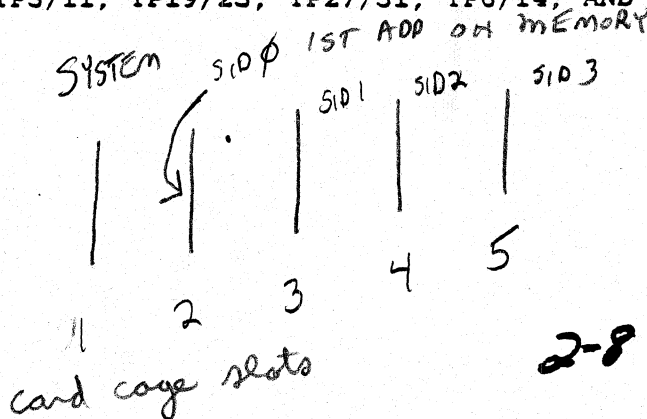 TP3/11, TP19/23, TP27/31, TP6/14, AND
SYSTEM SID0 1ST ADD ON MEMORY
SID1 SID2 SID3
1 2 3 4 5
card cage slots
2-8